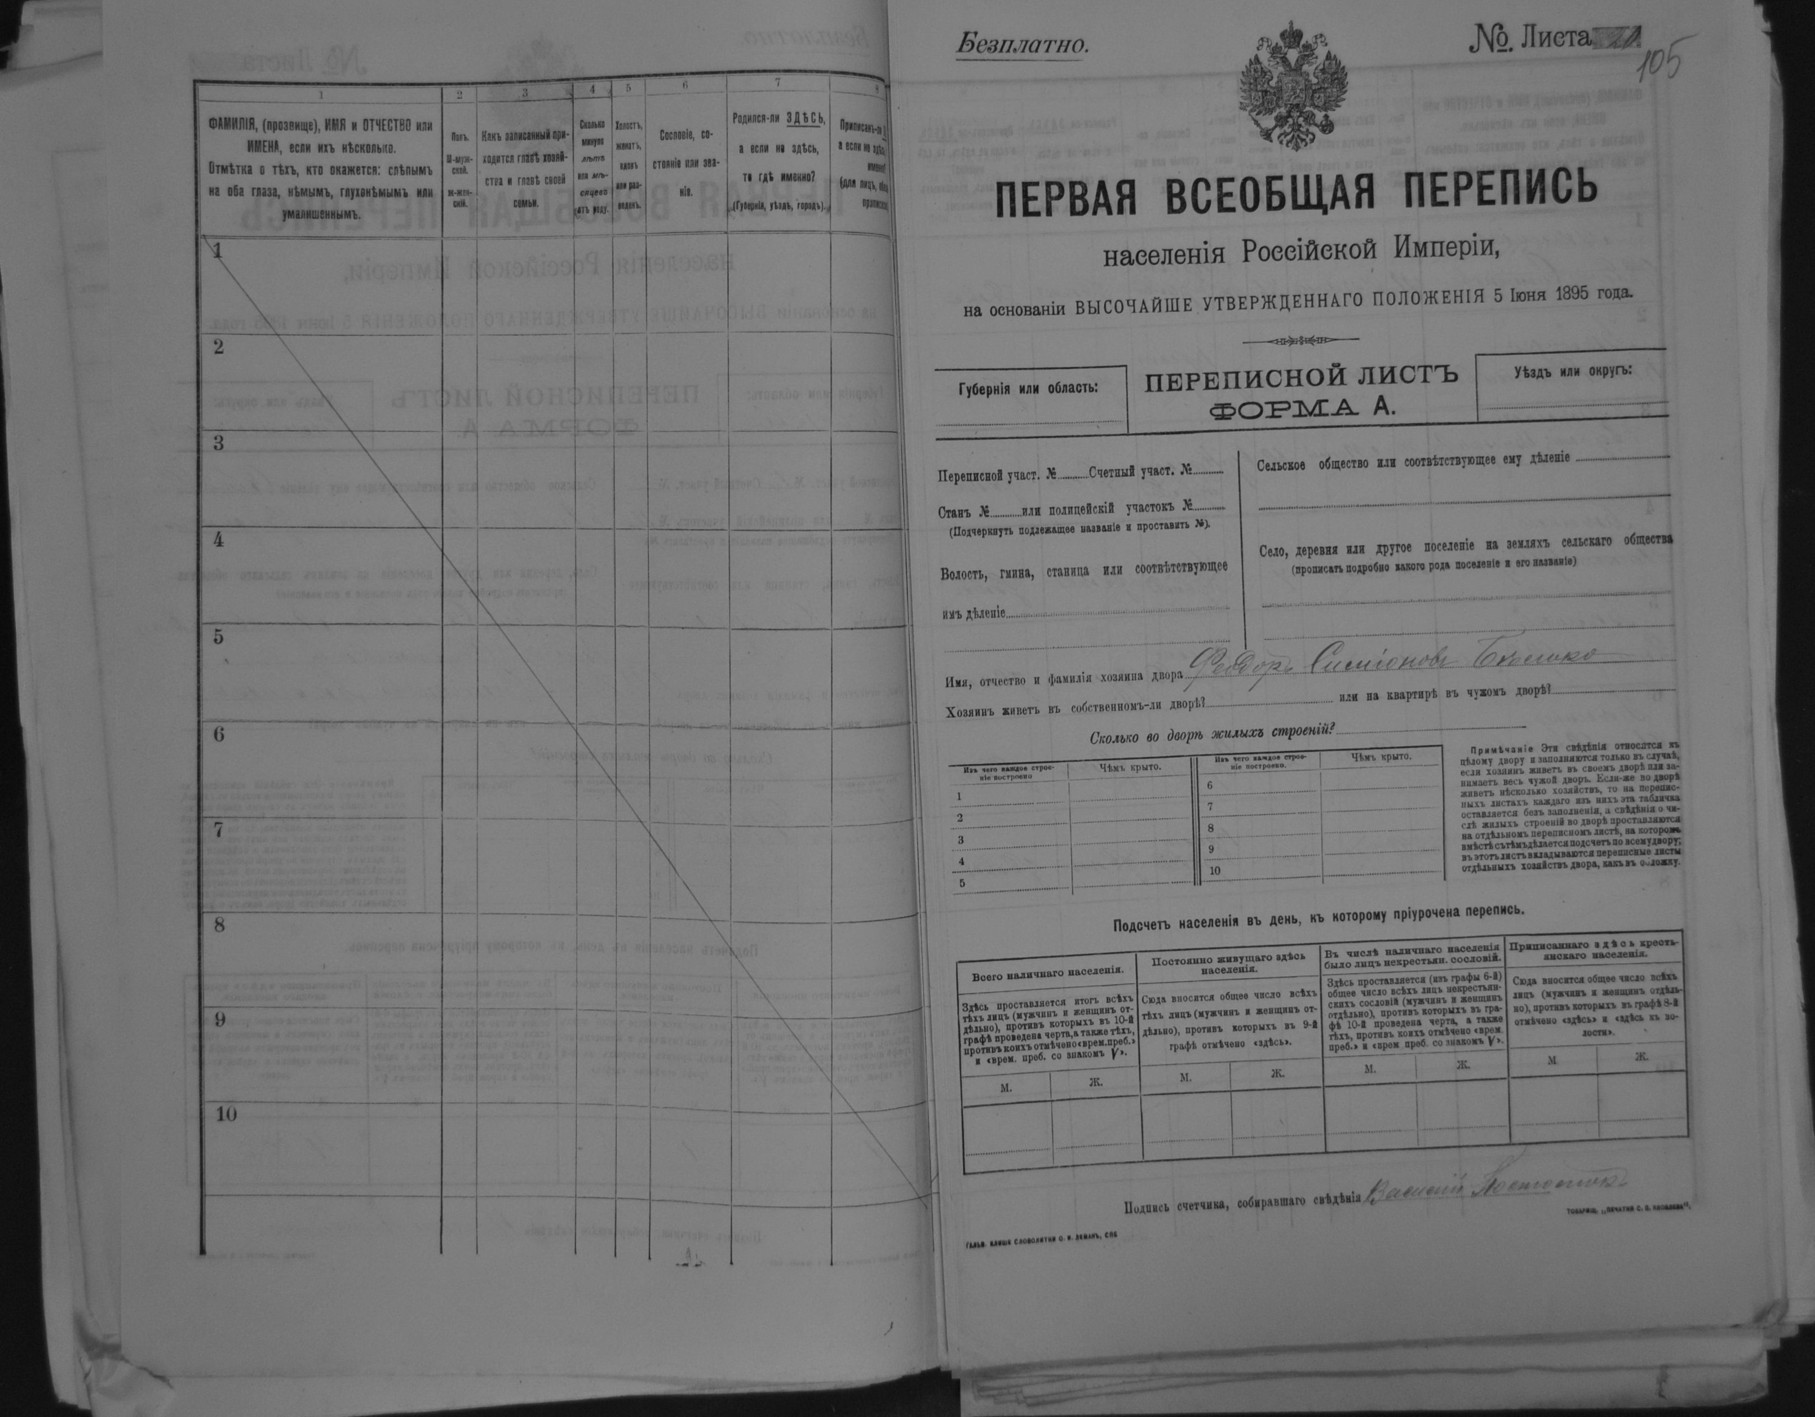 1
2
3
4
5
6
7
8
ФАМИЛІЯ, (прозвище), ИМЯ и ОТЧЕСТВО или
ИМЕНА, если ихъ нѣсколько.
Отмѣтка о тѣхъ, кто окажется: слѣпымъ
на оба глаза, нѣмымъ, глухонѣмымъ или
умалишеннымъ.
Полъ.
М-муж-
ской.
ж-жен-
скій.
Какъ записанный при-
ходится главѣ хозяй-
ства и главѣ своей
семьи.
Сколько
минуло
лѣтъ
или мѣ-
сяцевъ
отъ роду.
Холостъ,
женатъ,
вдовъ
или раз-
веденъ.
Сословіе, со-
стояніе или зва-
ніе.
Родился-ли ЗДѢСЬ,
а если не здѣсь,
то гдѣ именно?
(Губернія, уѣздъ, городъ).
1
2
3
4
5
6
7
8
9
10
Безплатно.
№. Листа
105
ПЕРВАЯ ВСЕОБЩАЯ ПЕРЕПИСЬ
населенія Россійской Имперіи,
на основаніи ВЫСОЧАЙШЕ УТВЕРЖДЕННАГО ПОЛОЖЕНІЯ 5 Іюня 1895 года.
Губернія или область:
ПЕРЕПИСНОЙ ЛИСТЪ
ФОРМА А.
Уѣздъ или округъ:
Переписной участ. № Счетный участ. №
Станъ № или полицейскій участокъ №
(Подчеркнуть подлежащее названіе и проставить №).
Волость, гмина, станица или соотвѣтствующее
имъ дѣленіе
Сельское общество или соотвѣтствующее ему дѣленіе
Село, деревня или другое поселеніе на земляхъ сельскаго общества
(прописать подробно какого рода поселеніе и его названіе)
Имя, отчество и фамилія хозяина двора Феодоръ Симіоновъ
Хозяинъ живетъ въ собственномъ-ли дворѣ? или на квартирѣ въ чужомъ дворѣ?
Сколько во дворѣ жилыхъ строеній?
Изъ чего каждое строе-
ніе построено
Чѣмъ крыто.
1
2
3
4
5
Изъ чего каждое строе-
ніе построено.
Чѣмъ крыто.
6
7
8
9
10
Примѣчаніе Эти свѣдѣнія относятся къ
цѣлому двору и заполняются только въ случаѣ,
если хозяинъ живетъ въ своемъ дворѣ или за-
нимаетъ весь чужой дворъ. Если-же во дворѣ
живетъ нѣсколько хозяйствъ, то на перепис-
ныхъ листахъ каждаго изъ нихъ эта табличка
оставляется безъ заполненія, а свѣдѣнія о чи-
слѣ жилыхъ строеній во дворѣ проставляются
на отдѣльномъ переписномъ листѣ, на которомъ
вмѣстѣ съ тѣмъ дѣлается подсчетъ по всему двору;
въ этотъ листъ вкладываются переписные листы
отдѣльныхъ хозяйствъ двора, какъ въ обложку.
Подсчетъ населенія въ день, къ которому пріурочена перепись.
Всего наличнаго населенія.
Здѣсь проставляется итогъ всѣхъ
тѣхъ лицъ (мужчинъ и женщинъ от-
дѣльно), противъ которыхъ въ 10-й
графѣ проведена черта, а также тѣхъ,
противъ коихъ отмѣчено «врем. преб.»
и «врем. преб. со знакомъ V».
М.
Ж.
Постоянно живущаго здѣсь
населенія.
Сюда вносится общее число всѣхъ
тѣхъ лицъ (мужчинъ и женщинъ от-
дѣльно), противъ которыхъ въ 9-й
графѣ отмѣчено «здѣсь».
М.
Ж.
Въ числѣ наличнаго населенія
было лицъ некрестьян. сословій.
Здѣсь проставляется (изъ графы 6-й)
общее число всѣхъ лицъ некрестьян-
скихъ сословій (мужчинъ и женщинъ
отдѣльно), противъ которыхъ въ гра-
фѣ 10-й проведена черта, а также
тѣхъ, противъ коихъ отмѣчено «врем.
преб.» и «врем преб. со знакомъ V».
М.
Ж.
Приписаннаго здѣсь кресть-
янскаго населенія.
Сюда вносится общее число всѣхъ
лицъ (мужчинъ и женщинъ отдѣль-
но), противъ которыхъ въ графѣ 8-й
отмѣчено «здѣсь» и «здѣсь къ во-
лости».
М.
Ж.
Подпись счетчика, собиравшаго свѣдѣнія Василій
ГАЛЬВ. КЛИШЕ СЛОВОЛИТНИ О. И. ЛЕМАНЪ, СПБ
ТОВАРИЩ. „ПЕЧАТНЯ С. П. ЯКОВЛЕВА".